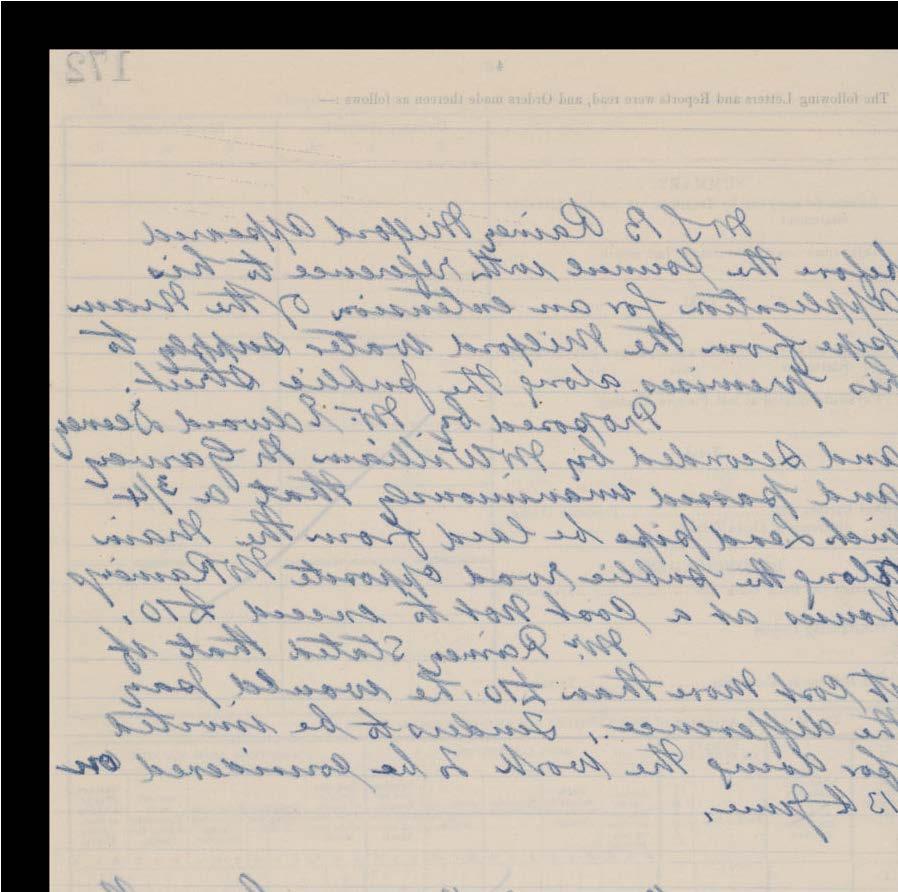 172
4
The following Letters and Reports were read, and Orders made thereon as follows :—
SUMMARY
Mr J B Rainey Milford Appeared
before the Council with reference to his
Application for an extension of the Main
pipe from the Milford water supply to
his premises along the public street.
Proposed by Mr Edward Deeney
and Seconded by Mr William Mc Garvey
and passed unanimously that a 3/4
inch Lead pipe be laid from the Main
Along the public road opposite Mr Rainey's
Houses at a Cost Not to exceed £10.
Mr Rainey Stated that if
it Cost More than £10. he would pay
the difference, Tenders to be invited
for doing the work to be Considered on
13th June,